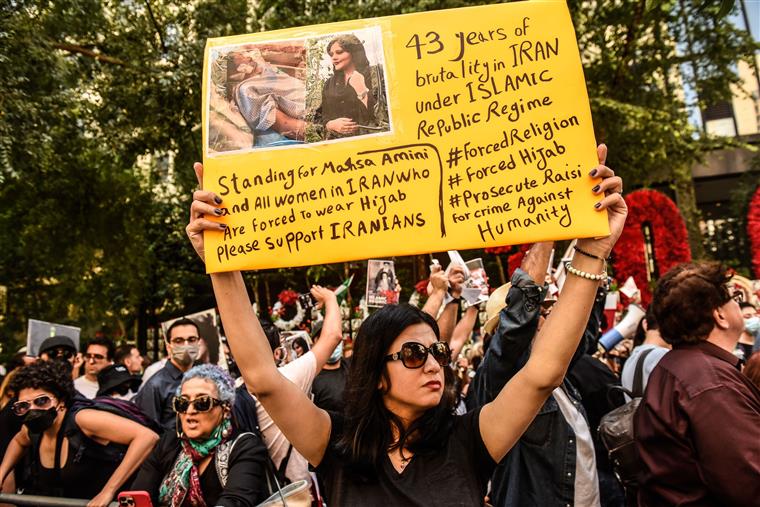 43 years of
brutality in IRAN
under ISLAMIC
Republic Regime
#Forced Religion
# Forced Hijab
#Prosecute Raisi
for crime Against
Humanity
Standing for Mahsa Amini
and All women in IRAN who
Are forced to wear Hijab
please support IRANIANS